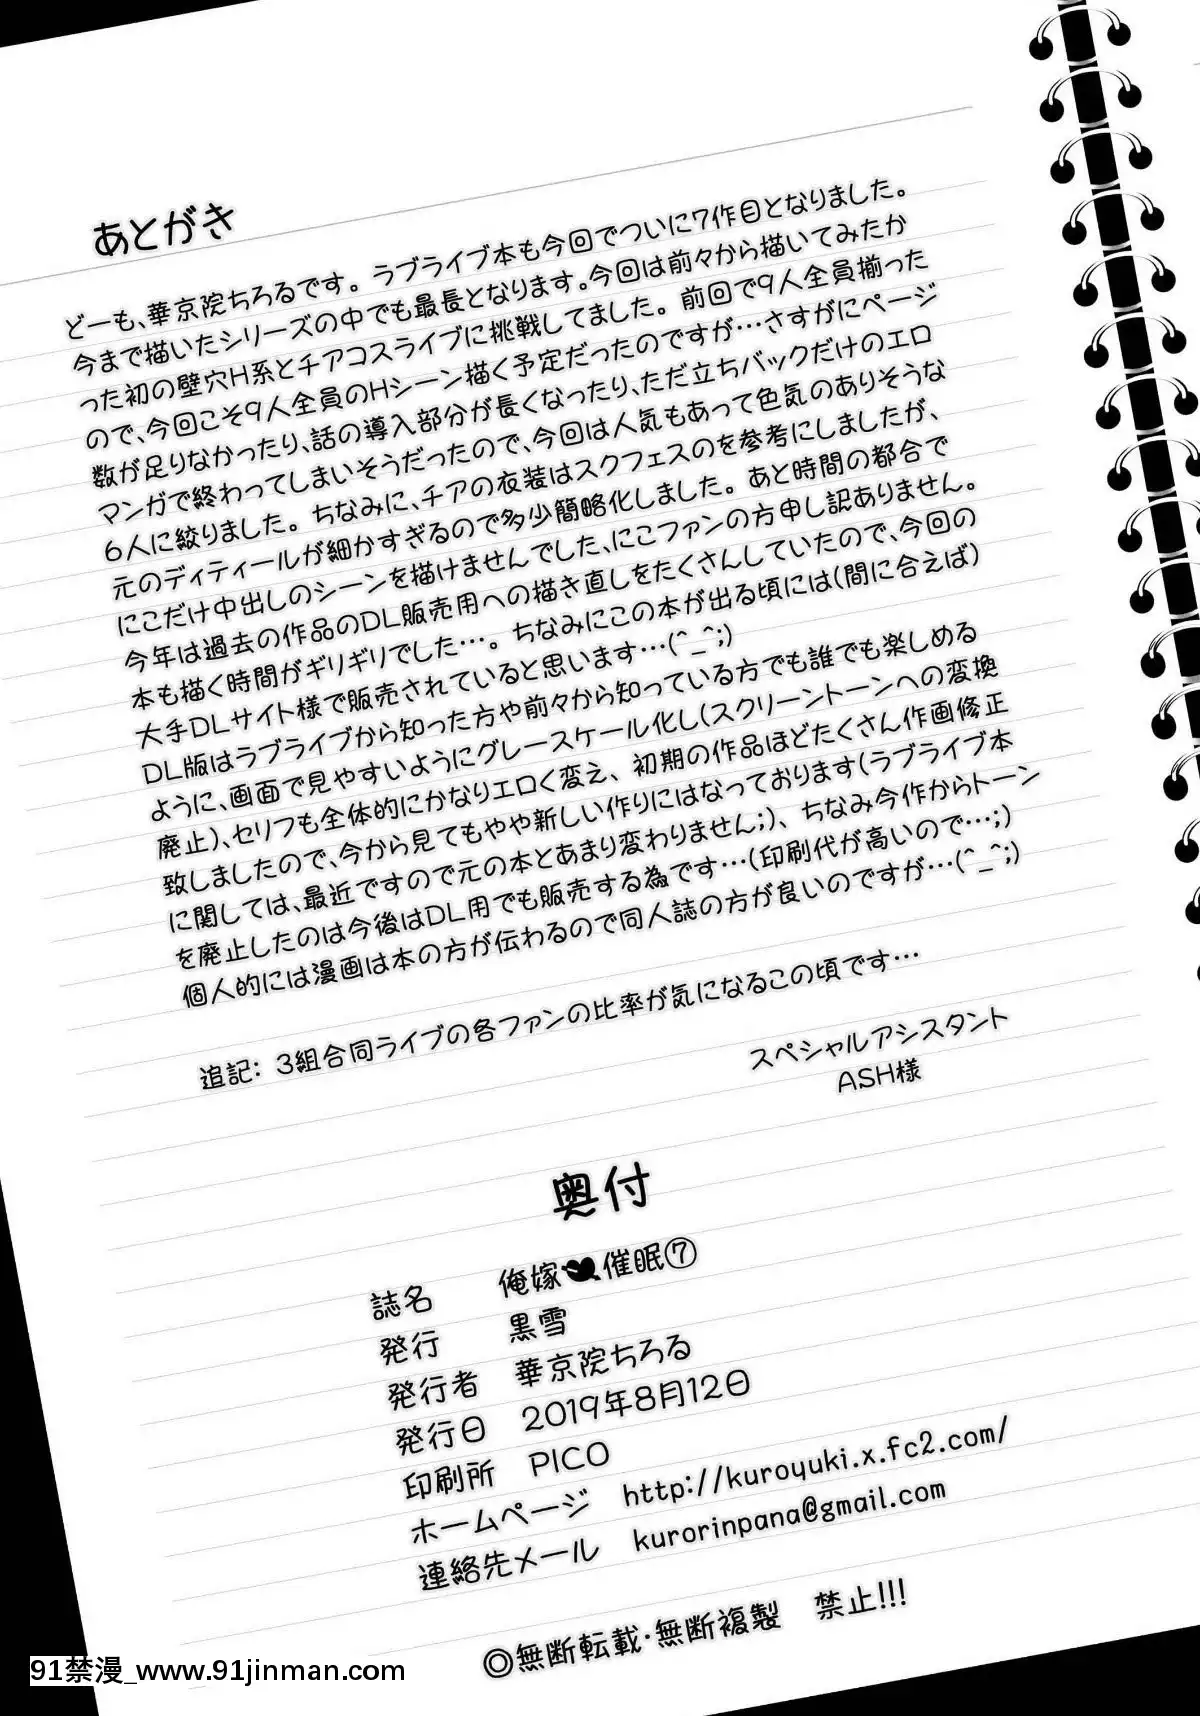 あとがき
どーも、華京院ちろるです。ラブライブ本も今回でついに7作目となりました。
今まで描いたシリーズの中でも最長となります。今回は前々から描いてみたか
った初の壁穴H系とチアコスライブに挑戦してました。前回で9人全員揃った
ので、今回こそ9人全員のHシーン描く予定だったのですが…さすがにページ
数が足りなかったり、話の導入部分が長くなったり、ただ立ちバックだけのエロ
マンガで終わってしまいそうだったので、今回は人気もあって色気のありそうな
6人に絞りました。ちなみに、チアの衣装はスクフェスのを参考にしましたが、
元のディティールが細かすぎるので多少簡略化しました。あと時間の都合で
にこだけ中出しのシーンを描けませんでした、にこファンの方申し訳ありません。
今年は過去の作品のDL販売用への描き直しをたくさんしていたので、今回の
本も描く時間がギリギリでした…。ちなみにこの本が出る頃には(間に合えば)
大手DLサイト様で販売されていると思います…(^_^;)
DL版はラブライブから知った方や前々から知っている方でも誰でも楽しめる
ように、画面で見やすいようにグレースケール化し(スクリーントーンへの変換
廃止)、セリフも全体的にかなりエロく変え、初期の作品ほどたくさん作画修正
致しましたので、今から見てもやや新しい作りにはなっております(ラブライブ本
に関しては、最近ですので元の本とあまり変わりません;)、ちなみ今作からトーン
を廃止したのは今後はDL用でも販売する為です…(印刷代が高いので…;)
個人的には漫画は本の方が伝わるので同人誌の方が良いのですが…(^_^;)
追記: 3組合同ライブの各ファンの比率が気になるこの頃です…
スペシャルアシスタント
ASH様
奥付
誌名 俺嫁催眠⑦
発行 黒雪
発行者 華京院ちろる
発行日 2019年8月12日
印刷所 PICO
ホームページ http://kuroyuki.x.fc2.com/
連絡先メール kurorinpana@gmail.com
◎無断転載・無断複製 禁止!!!
91禁漫_www.91jinman.com